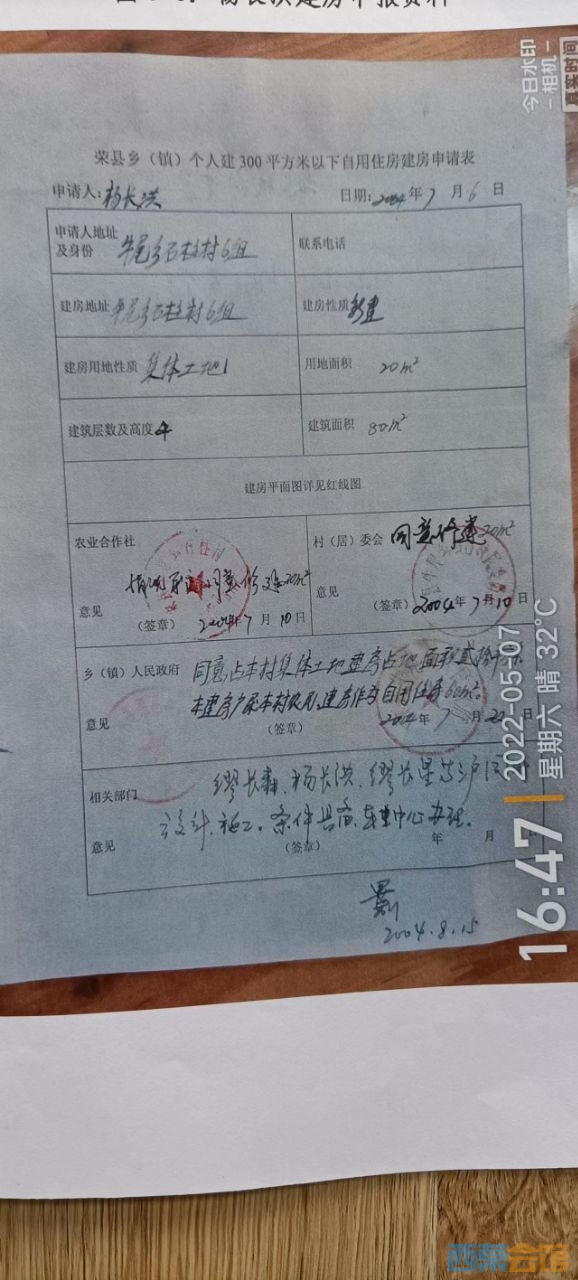 荣县乡（镇）个人建300平方米以下自用住房建房申请表
申请人：杨长洪 日期：2004年7月6日
申请人地址及身份 牛尾乡石柱村6组 联系电话
建房地址 牛尾乡石柱村6组 建房性质 新建
建房用地性质 集体土地 用地面积 20m²
建筑层数及高度 4 建筑面积 80m²
建房平面图详见红线图
农业合作社 村（居）委会 同意修建20m²
意见 意见
（签章） 2004年7月10日 （签章） 2004年7月10日
乡（镇）人民政府 同意占本村集体土地建房占地面积贰拾
本建房户系本村农民，建房作为自用住房
意见 （签章） 2004年7月22日
相关部门 缪长青、杨长洪、缪长星
设计、施工。条件具备，中心办理。
意见 （签章） 年 月
2004.8.15
今日水印
-相机-
真实时间
16:47
2022-05-07
星期六 晴 32℃
西祠会馆